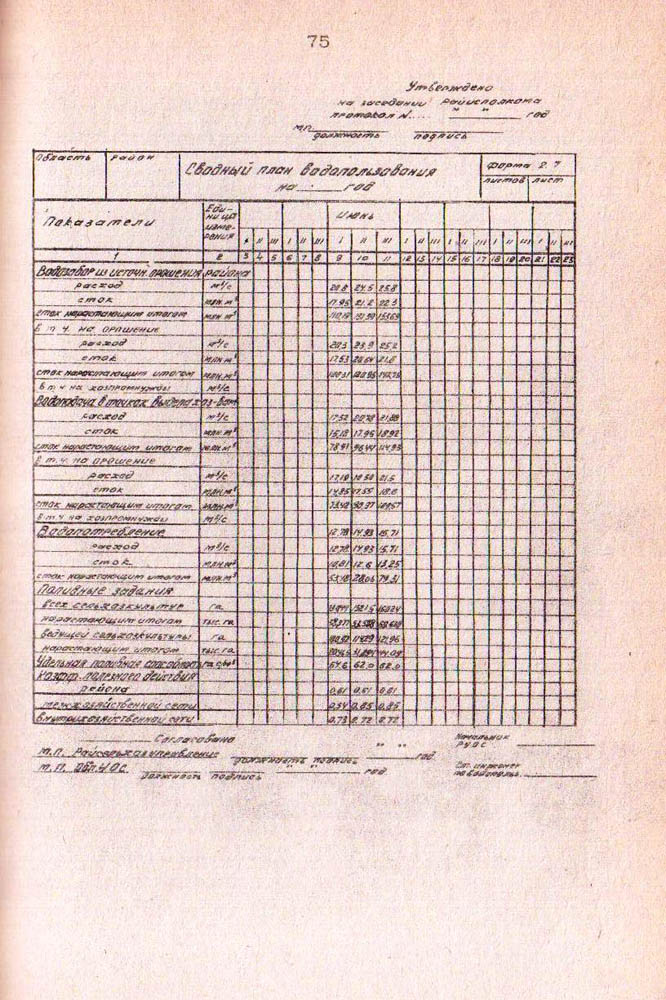 75
Утверждено
на заседании райисполкома
протокол N.... " " год
м.п.
должность подпись
Область район Сводный план водопользования форма 2.7
на год листов лист
Показатели Единица измерения июнь
I II III I II III I II III I II III I II III I II III I II III
1 2 3 4 5 6 7 8 9 10 11 12 13 14 15 16 17 18 19 20 21 22 23
Водозабор из источн. орошения района
расход м³/с 20.8 24.5 25.8
сток млн.м³ 17.95 21.2 22.3
сток нарастающим итогом млн.м³
в т.ч. на орошение
расход м³/с 20.3 23.9 25.2
сток млн.м³ 17.53 20.64 21.8
сток нарастающим итогом млн.м³
в т.ч на хозпромнужды м³/с
Водоподача в точках выдела хоз-вам
расход м³/с 17.52 20.78 21.88
сток млн.м³ 15.13 17.95 18.92
сток нарастающим итогом млн.м³ 78.91 96.41 114.93
в т.ч. на орошение
расход м³/с 17.19 21.5
сток млн.м³ 14.85 17.55 18.6
сток нарастающим итогом млн.м³
в т.ч на хозпромнужды м³/с
Водопотребление 12.78 14.93 15.71
расход м³/с 12.78 14.93 15.71
сток млн.м³ 12.6 13.25
сток нарастающим итогом млн.м³ 79.31
Поливные задания
всех сельхозкультур га
нарастающим итогом тыс.га
ведущей сельхозкультуры га
нарастающим итогом тыс.га
Удельная поливная способность 62.0 62.0
Коэфф. полезного действия
района 0.61 0.61 0.61
межхозяйственной сети 0.84 0.85 0.85
внутрихозяйственной сети 0.73 0.72 0.72
Согласовано
Начальник РУОС
м.п. Райсельхозуправление " " год
должность подпись
м.п. Обл.УОС " " год
должность подпись
Ст. инженер по водопольз.